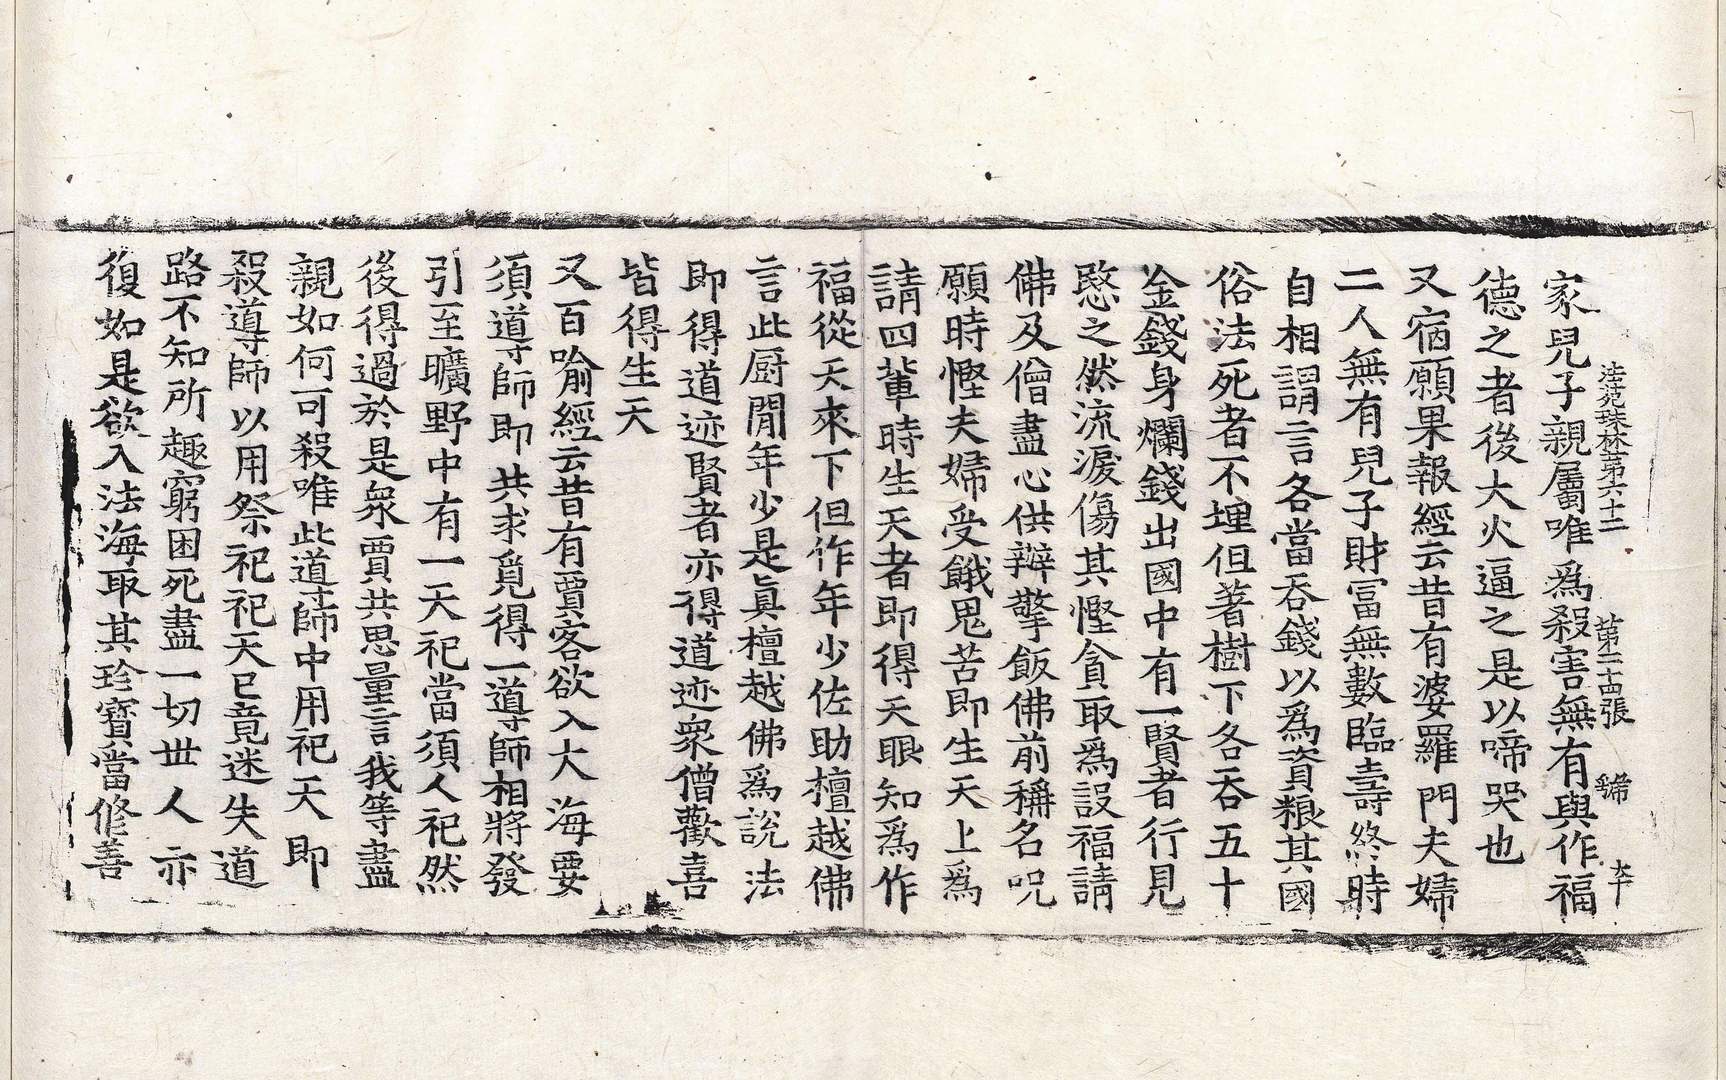 法苑珠林第六十二 第二十四張 號
家兒子親屬唯為殺害無有與作福
德之者後大火逼之是以啼哭也
又宿願果報經云昔有婆羅門夫婦
二人無有兒子財富無數臨壽終時
自相謂言各當吞錢以為資粮其國
俗法死者不埋但著樹下各吞五十
金錢身爛錢出國中有一賢者行見
愍之然流淚傷其慳貪取為設福請
佛及僧盡心供辦擎飯佛前稱名呪
願時慳夫婦受餓鬼苦即生天上為
請四輩時生天者即得天眼知為作
福從天來下但作年少佐助檀越佛
言此厨閒年少是真檀越佛為說法
即得道迹賢者亦得道迹衆僧歡喜
皆得生天
又百喻經云昔有賈客欲入大海要
須導師即共求覓得一導師相將發
引至曠野中有一天祀當須人祀然
後得過於是衆賈共思量言我等盡
親如何可殺唯此導師中用祀天即
殺導師以用祭祀祀天已竟迷失道
路不知所趣窮困死盡一切世人亦
復如是欲入法海取其珍寶當修善